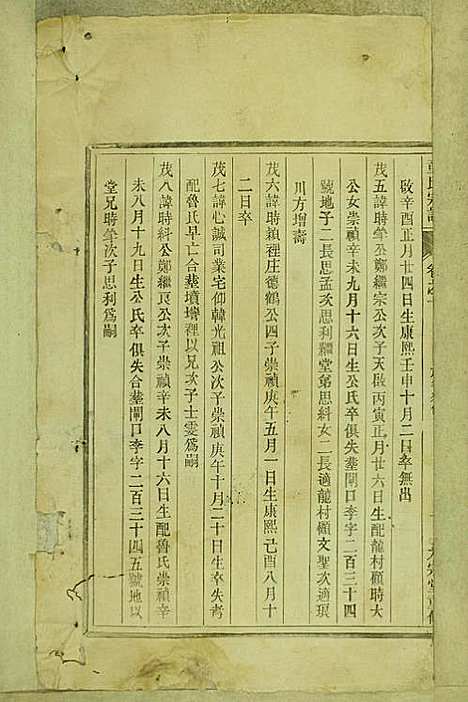 啟辛酉正月廿四日生康熙壬申十月二日卒無出
茂五諱時學公鄭繼宗公次子天啟丙寅正月廿六日生配龍村顧時大
公女崇禎辛未九月十六日生公氏卒俱失塟閘口李字二百三十四
號地子二長思孟次思利繼堂弟思科女二長適龍村顧文聖次適項
川方增壽
茂六諱時穎裡庄德鶴公四子崇禎庚午五月一日生康熙己酉八月十
二日卒
茂七諱心誠司業宅仰韓光祖公次子崇禎庚午十月二十日生卒失考
配魯氏早亡合塟墳塝裡以兄次子士雯爲嗣
茂八諱時科公鄭繼良公次子崇禎辛未八月十六日生配魯氏崇禎辛
未八月十九日生公氏卒俱失合塟閘口李字二百三十四五號地以
堂兄時學次子思利爲嗣